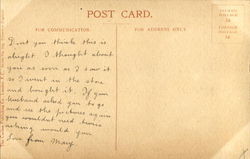 POST CARD.
FOR COMMUNICATION.
FOR ADDRESS ONLY.
INLAND
POSTAGE
½d
FOREIGN
POSTAGE
1d
Don't you think this is
alright. I thought about
you as soon as I saw it
so I went in the store
and bought it. If your
husband asked you to go
and see the pictures again
you wouldn't need twice
asking would you
Love from Mary